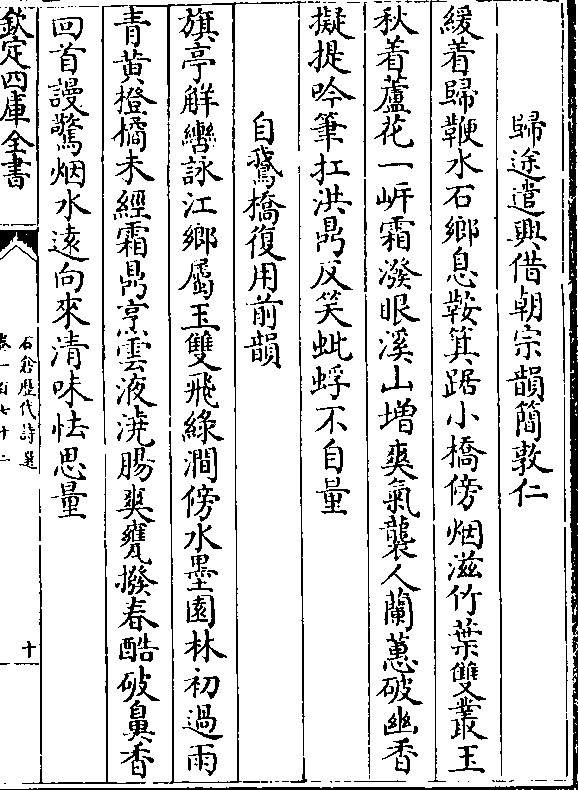 歸途遣興借朝宗韻簡敦仁
緩着歸鞭水石鄉息鞍箕踞小橋傍烟滋竹葉雙叢玉
秋着蘆花一岸霜潑眼溪山增爽氣襲人蘭蕙破幽香
擬提吟筆扛洪鼎反笑蚍蜉不自量
自鵞橋復用前韻
旗亭解轡詠江鄉屬玉雙飛綠澗傍水墨園林初過雨
青黃橙橘未經霜鼎烹雲液澆腸爽甕撥春醅破鼻香
回首謾驚烟水遠向來清味怯思量
欽定四庫全書
石倉歷代詩選
卷一百七十二
十